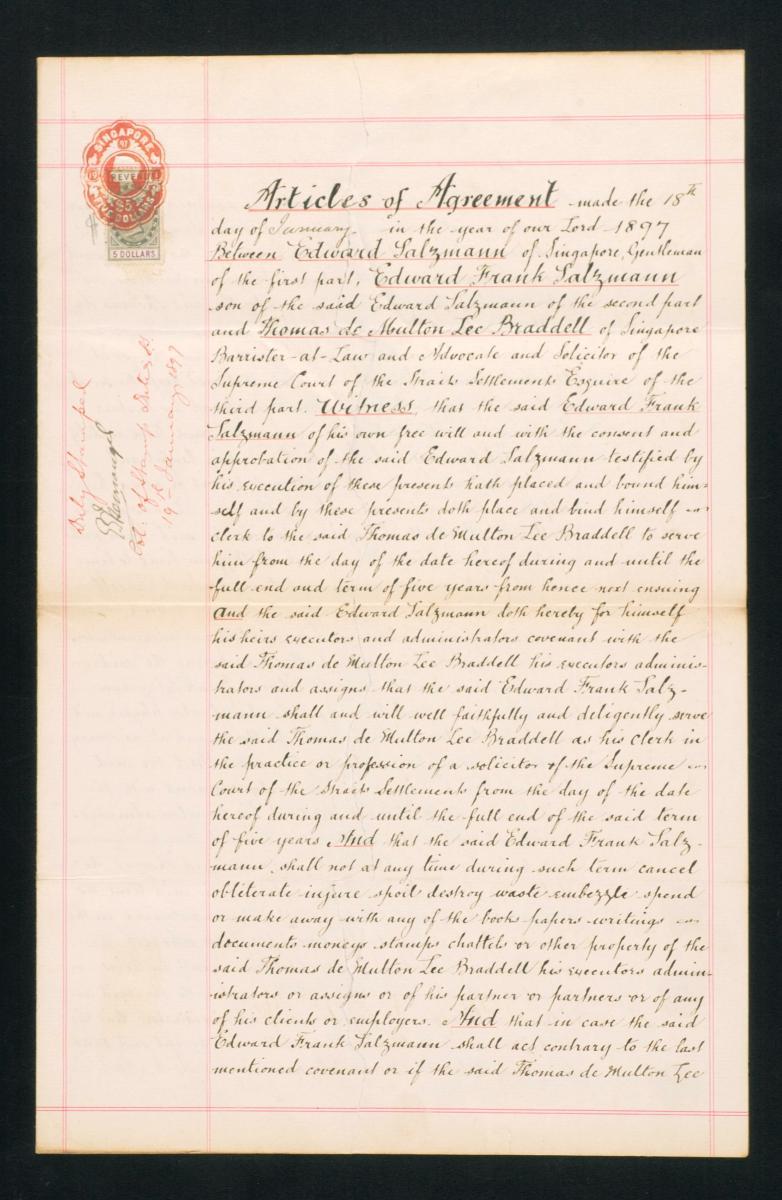 SINGAPORE
97
REVENUE
$5
FIVE DOLLARS
5 DOLLARS
Duly Stamped
Col. of Stamp Duties
19th January 1897
Articles of Agreement made the 18th
day of January in the year of our Lord 1897
Between Edward Salzmann of Singapore, Gentleman
of the first part, Edward Frank Salzmann
son of the said Edward Salzmann of the second part
and Thomas de Multon Lee Braddell of Singapore
Barrister-at-Law and Advocate and Solicitor of the
Supreme Court of the Straits Settlements Esquire of the
third part. Witness that the said Edward Frank
Salzmann of his own free will and with the consent and
approbation of the said Edward Salzmann testified by
his execution of these presents hath placed and bound him-
self and by these presents doth place and bind himself
clerk to the said Thomas de Multon Lee Braddell to serve
him from the day of the date hereof during and until the
full end and term of five years from hence next ensuing
And the said Edward Salzmann doth hereby for himself
his heirs executors and administrators covenant with the
said Thomas de Multon Lee Braddell his executors adminis-
trators and assigns that the said Edward Frank Salz-
mann shall and will well faithfully and deligently serve
the said Thomas de Multon Lee Braddell as his clerk in
the practice or profession of a solicitor of the Supreme
Court of the Straits Settlements from the day of the date
hereof during and until the full end of the said term
of five years And that the said Edward Frank Salz-
mann shall not at any time during such term cancel
obliterate injure spoil destroy waste embezzle spend
or make away with any of the books papers writings
documents moneys stamps chattels or other property of the
said Thomas de Multon Lee Braddell his executors admin-
istrators or assigns or of his partner or partners or of any
of his clients or employers. And that in case the said
Edward Frank Salzmann shall act contrary to the last
mentioned covenant or if the said Thomas de Multon Lee